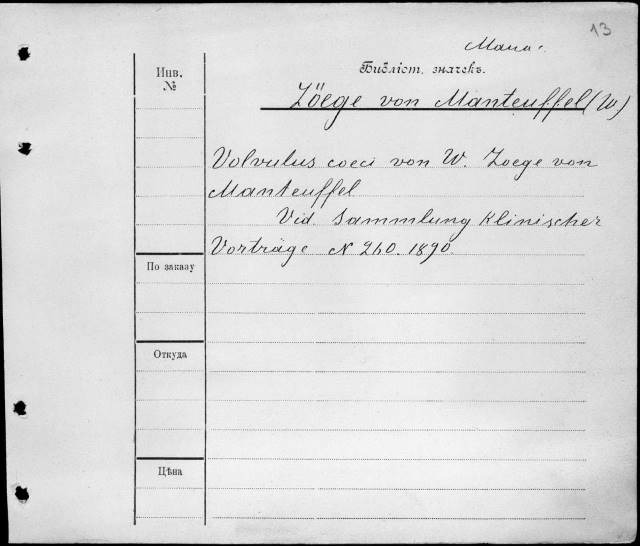 13
Инв.
№
Библіот. значекъ.
Zöege von Manteuffel (W)
Volvulus coeci von W. Zoege von
Manteuffel
Vid. Sammlung klinischer
Vorträge N 260. 1890.
По заказу
Откуда
Цѣна